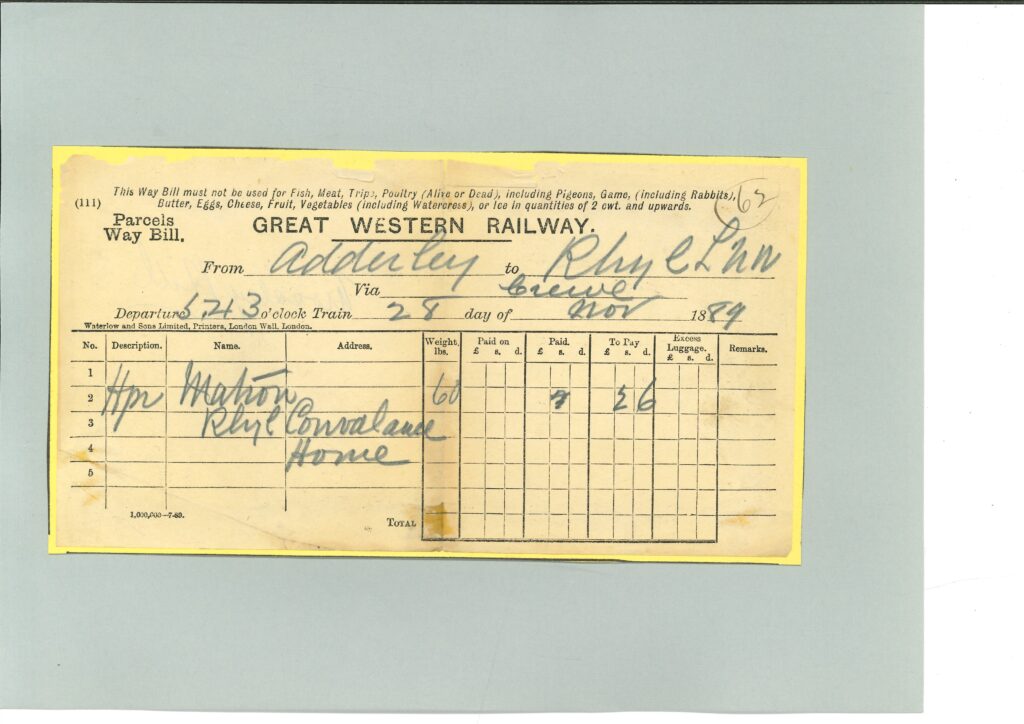 This Way Bill must not be used for Fish, Meat, Tripe, Poultry (Alive or Dead), including Pigeons, Game, (including Rabbits),
(111) Butter, Eggs, Cheese, Fruit, Vegetables (including Watercress), or Ice in quantities of 2 cwt. and upwards. 62
Parcels
Way Bill.
GREAT WESTERN RAILWAY.
From Adderley to Rhyl L N W
Via Crewe
Departure 5.43 o'clock Train 28 day of Nov 1889
Waterlow and Sons Limited, Printers, London Wall, London.
No. Description. Name. Address. Weight, lbs. Paid on £ s. d. Paid. £ s. d. To Pay £ s. d. Excess Luggage. £ s. d. Remarks.
1
2 Hpr Matron 60 6
3 Rhyl Convalance
4 Home
5
1,000,000—7-89.
TOTAL